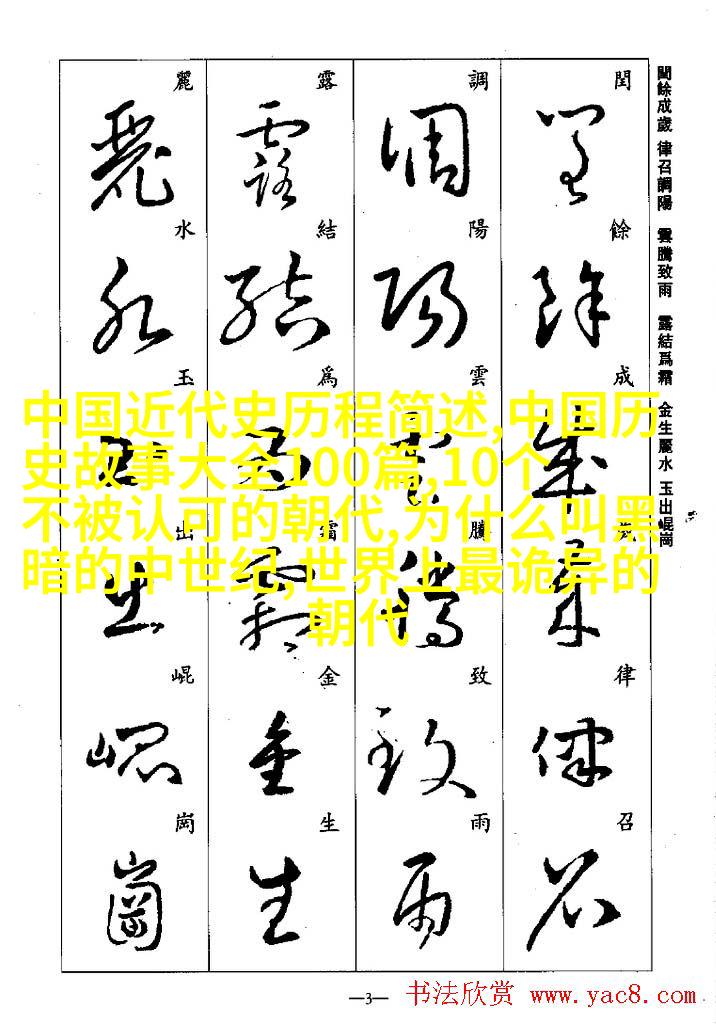 閏餘成歲 律召調陽 雲騰致雨 露結爲霜 金生麗水 玉出崐崗
閏餘成歲律召
閏餘成歲律召
調陽雲騰致雨
調陽雲騰致雨
露結為霜金生
露結為霜金生
麗水玉出崐崗
麗水玉出崐崗
中国近代史历程简述,中国历
史故事大全100篇,10个
不被认可的朝代,为什么叫黑
暗的中世纪,世界上最诡异的
朝代
—3—
书法欣赏 www.yac8.com